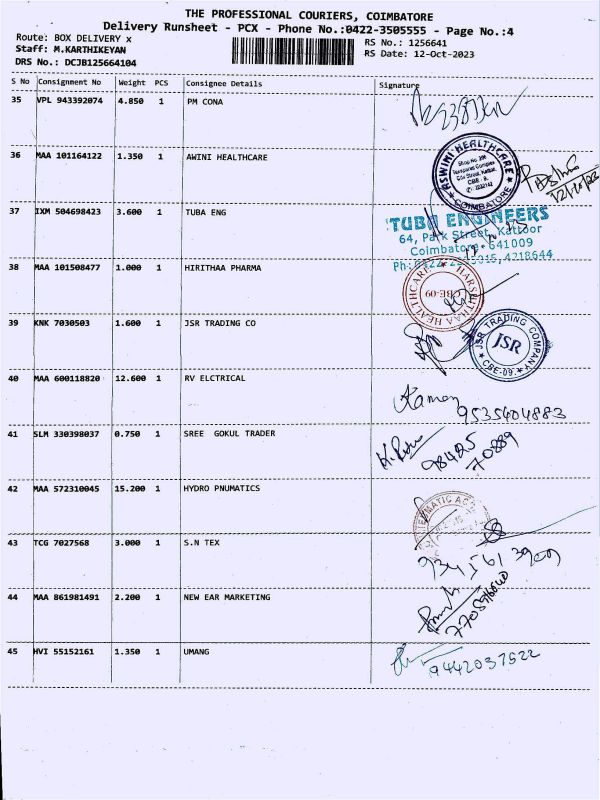 THE PROFESSIONAL COURIERS, COIMBATORE
Delivery Runsheet - PCX - Phone No.:0422-3505555 - Page No.:4
Route: BOX DELIVERY x
RS No.: 1256641
Staff: M.KARTHIKEYAN
RS Date: 12-Oct-2023
DRS No.: DCJB125664104
S No Consignment No Weight PCS Consignee Details Signature
35 VPL 943392074 4.850 1 PM CONA
36 MAA 101164122 1.350 1 AWINI HEALTHCARE
ASWINI HEALTHCARE
COIMBATORE
12/10/23
37 IXM 504698423 3.600 1 TUBA ENG
TUBA ENGINEERS
64, Park Street, Kattoor
Coimbatore - 641009
Ph: 4218644
38 MAA 101508477 1.000 1 HIRITHAA PHARMA
HARSHITHAA HEALTHCARE
CBE-09
39 KNK 7030503 1.600 1 JSR TRADING CO
JSR TRADING COMPANY
JSR
CBE-09.
40 MAA 600118820 12.600 1 RV ELCTRICAL
Raman
9535404883
41 SLM 330398037 0.750 1 SREE GOKUL TRADER
98425
70889
42 MAA 572310045 15.200 1 HYDRO PNUMATICS
43 TCG 7027568 3.000 1 S.N TEX
44 MAA 861981491 2.200 1 NEW EAR MARKETING
45 HVI 55152161 1.350 1 UMANG
9442037522